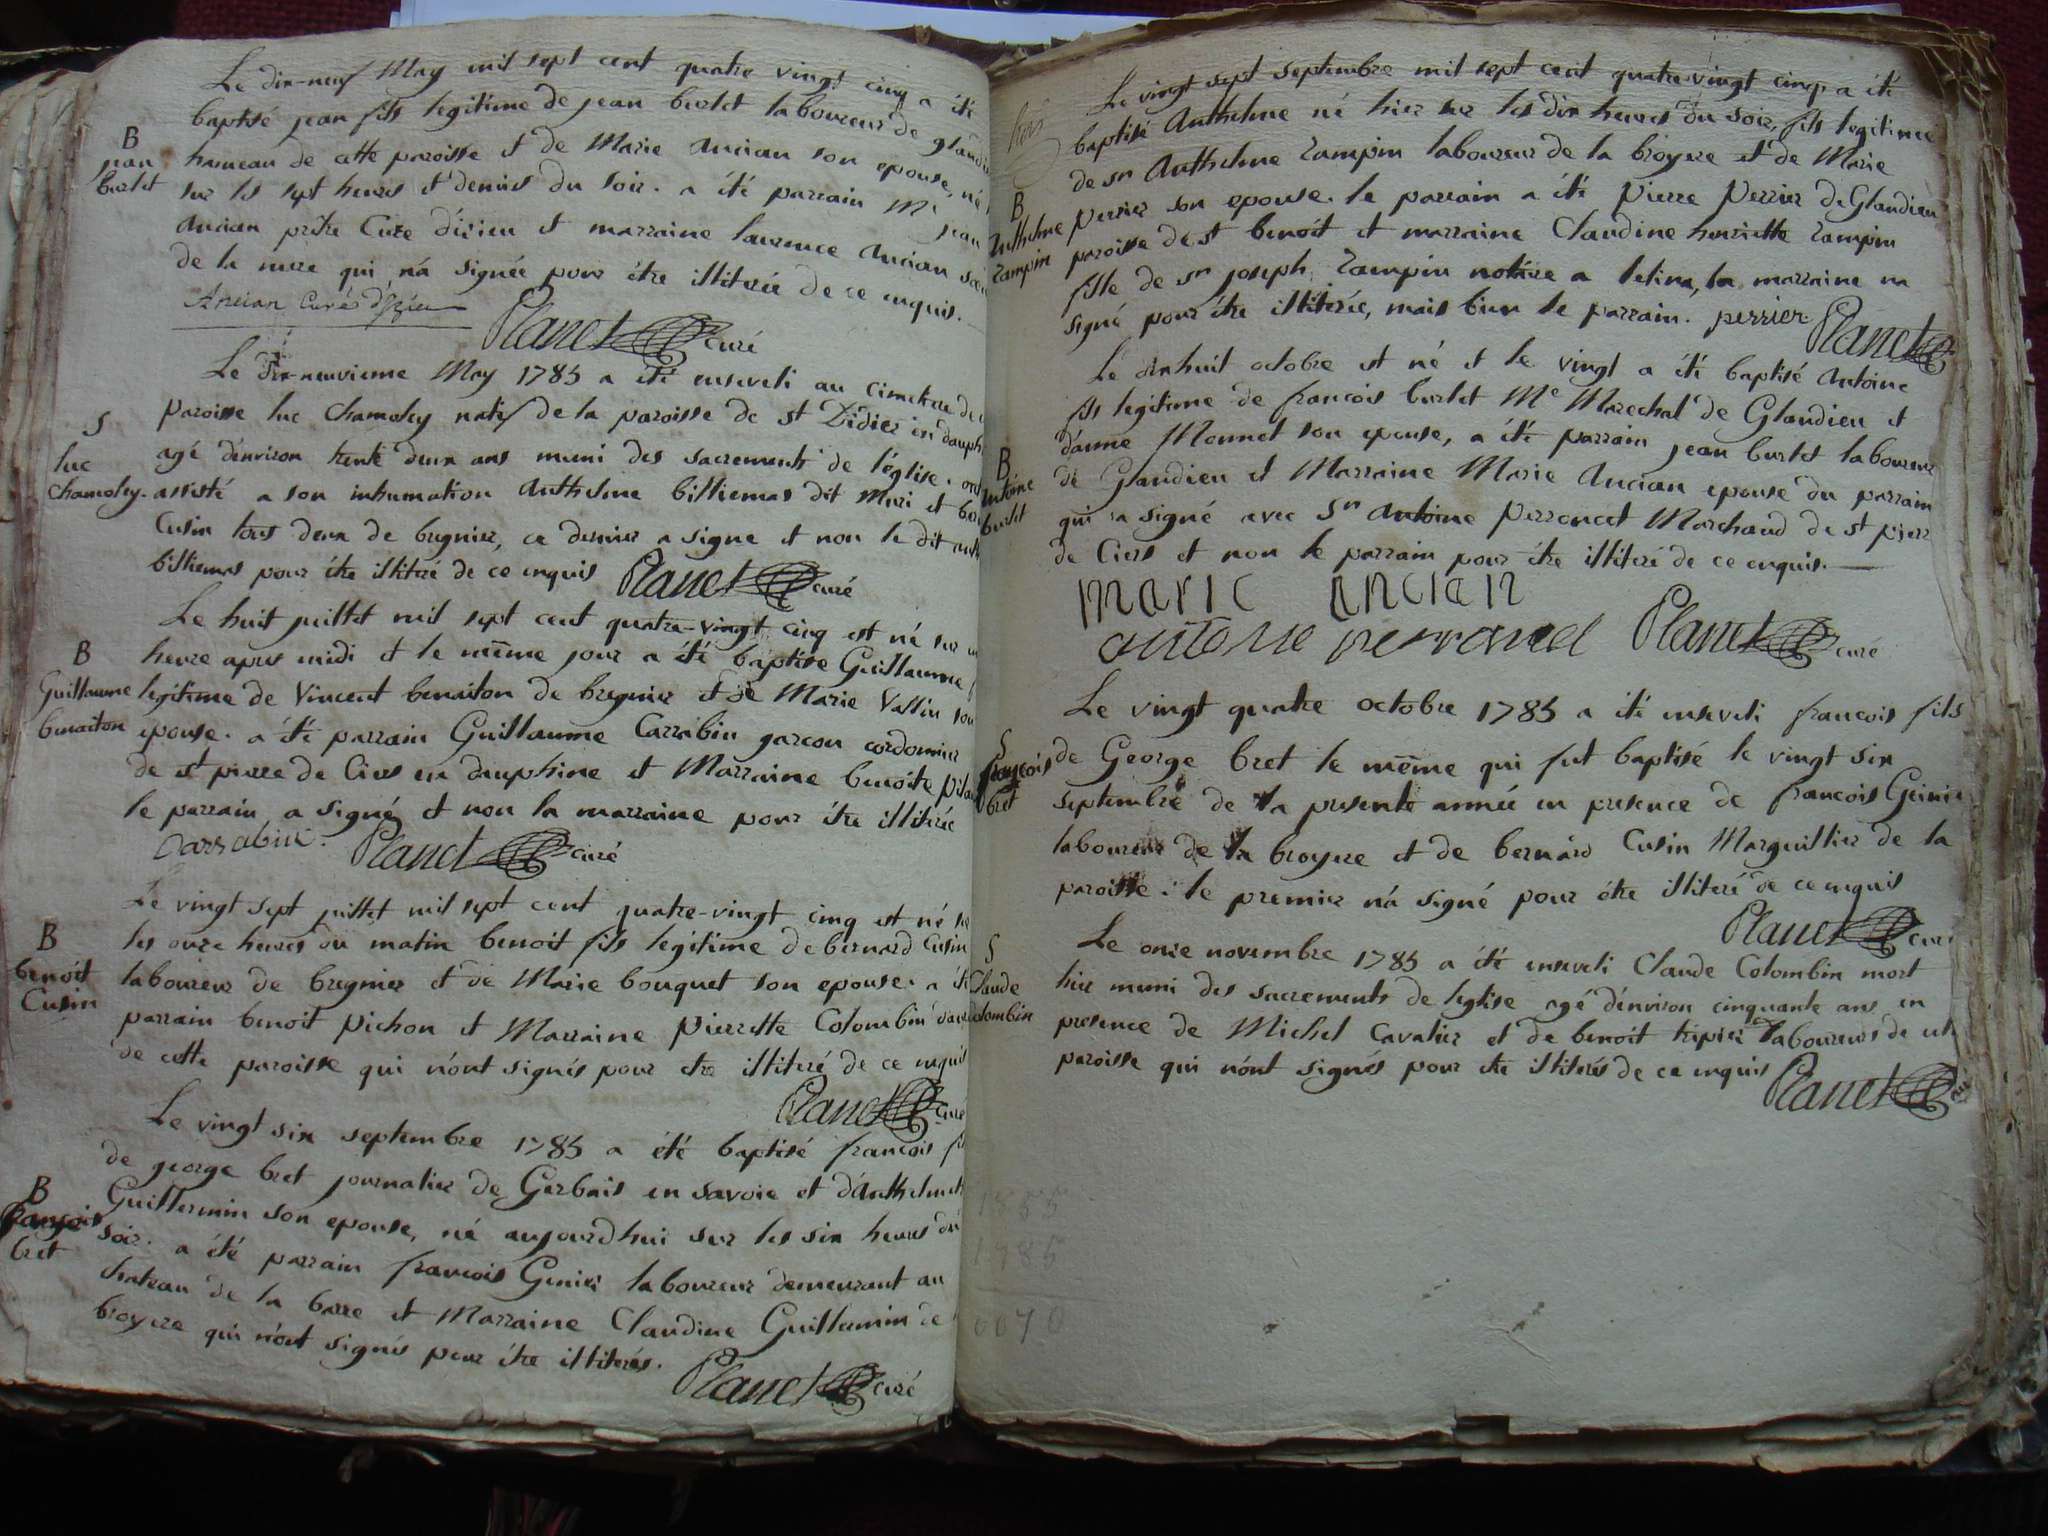 Le dix-neuf May mil sept cent quatre vingt cinq a été
baptisé jean fils legitime de jean burlet laboureur de
B
jean
burlet
hameau de cette paroisse et de Marie Ancian son epouse, né
sur les sept heures et demies du soir. a été parrain Mr jean
Ancian prêtre Curé d'izieu et marraine laurence Ancian
de la mere qui n'a signée pour être illiterée de ce enquis.
Ancian Curé d'Izieu
Planet curé
Le dix-neuvieme May 1785 a été enseveli au cimetiere de
S
luc
chamoley
paroisse luc chamoley natif de la paroisse de st Didier en
agé d'environ trente deux ans muni des sacrements de l'église. ont
assisté a son inhumation Anthelme billiemas dit Muri et
Cusin tous deux de bregnier, ce dernier a signe et non le dit
billiemas pour être illiteré de ce enquis Planet curé
Le huit juillet mil sept cent quatre-vingt cinq est né sur
B
Guillaume
benaiton
heure apres midi et le même jour a été baptisé Guillaume
legitime de Vincent benaiton de bregnier et de Marie Vallin son
épouse. a été parrain Guillaume Carrabin garcon cordonnier
de st pierre de Ciers en dauphine et Marraine benoite
le parrain a signé et non la marraine pour être illiterée
Carrabin. Planet curé
Le vingt sept juillet mil sept cent quatre-vingt cinq est né
B
benoit
Cusin
les onze heures du matin benoit fils legitime de bernard Cusin
laboureur de bregnier et de Marie bouquet son epouse. a été
parrain benoit Pichon et Marraine Pierrette Colombin
de cette paroisse qui n'ont signés pour etre illiteré de ce enquis
Planet curé
Le vingt six septembre 1785 a été baptisé francois
B
françois
bret
de george bret journalier de Gerbais en savoie et d'Anthelmette
Guillermin son epouse, né aujourd'hui sur les six heures du
soir. a été parrain francois Genin laboureur demeurant au
chateau de la barre et Marraine Claudine Guillermin de
broyere qui n'ont signés pour être illiterés.
Planet curé
Le vingt sept septembre mil sept cent quatre-vingt cinq a été
baptisé Anthelme né hier sur les dix heures du soir, fils legitime
de sr Anthelme Rampin laboureur de la broyere et de Marie
B
Anthelme
Rampin
perrier son epouse. le parrain a été Pierre Perrier de Glandieu
paroisse de st benoit et marraine Claudine henriette Rampin
fille de sr joseph Rampin notaire a lelina, la marraine na
signé pour être illiterée, mais bien le parrain. perrier
Planet
Le dixhuit octobre est né et le vingt a été baptisé Antoine
fils legitime de francois burlet Me Marechal de Glandieu et
B
Antoine
burlet
d'anne Monnet son epouse, a été parrain jean burlet laboureur
de Glandieu et Marraine Marie Ancian epouse du parrain
qui a signé avec Sr Antoine Perroncet Marchand de st pierre
de Ciers et non le parrain pour être illiteré de ce enquis.
marie ancian
Planet curé
Le vingt quatre octobre 1785 a été enseveli francois fils
S
françois
bret
de George bret le même qui fut baptisé le vingt six
septembre de la presente année en presence de francois Genin
laboureur de la broyere et de bernard Cusin Marguillier de la
paroisse. le premier n'a signé pour être illiteré de ce enquis
Planet curé
Le onze novembre 1785 a été enseveli Claude Colombin mort
S
Claude
Colombin
hier muni des sacrements de leglise agé d'environ cinquante ans en
presence de Michel Cavalier et de benoit tripier laboureurs de
paroisse qui n'ont signés pour etre illiterés de ce enquis
Planet curé